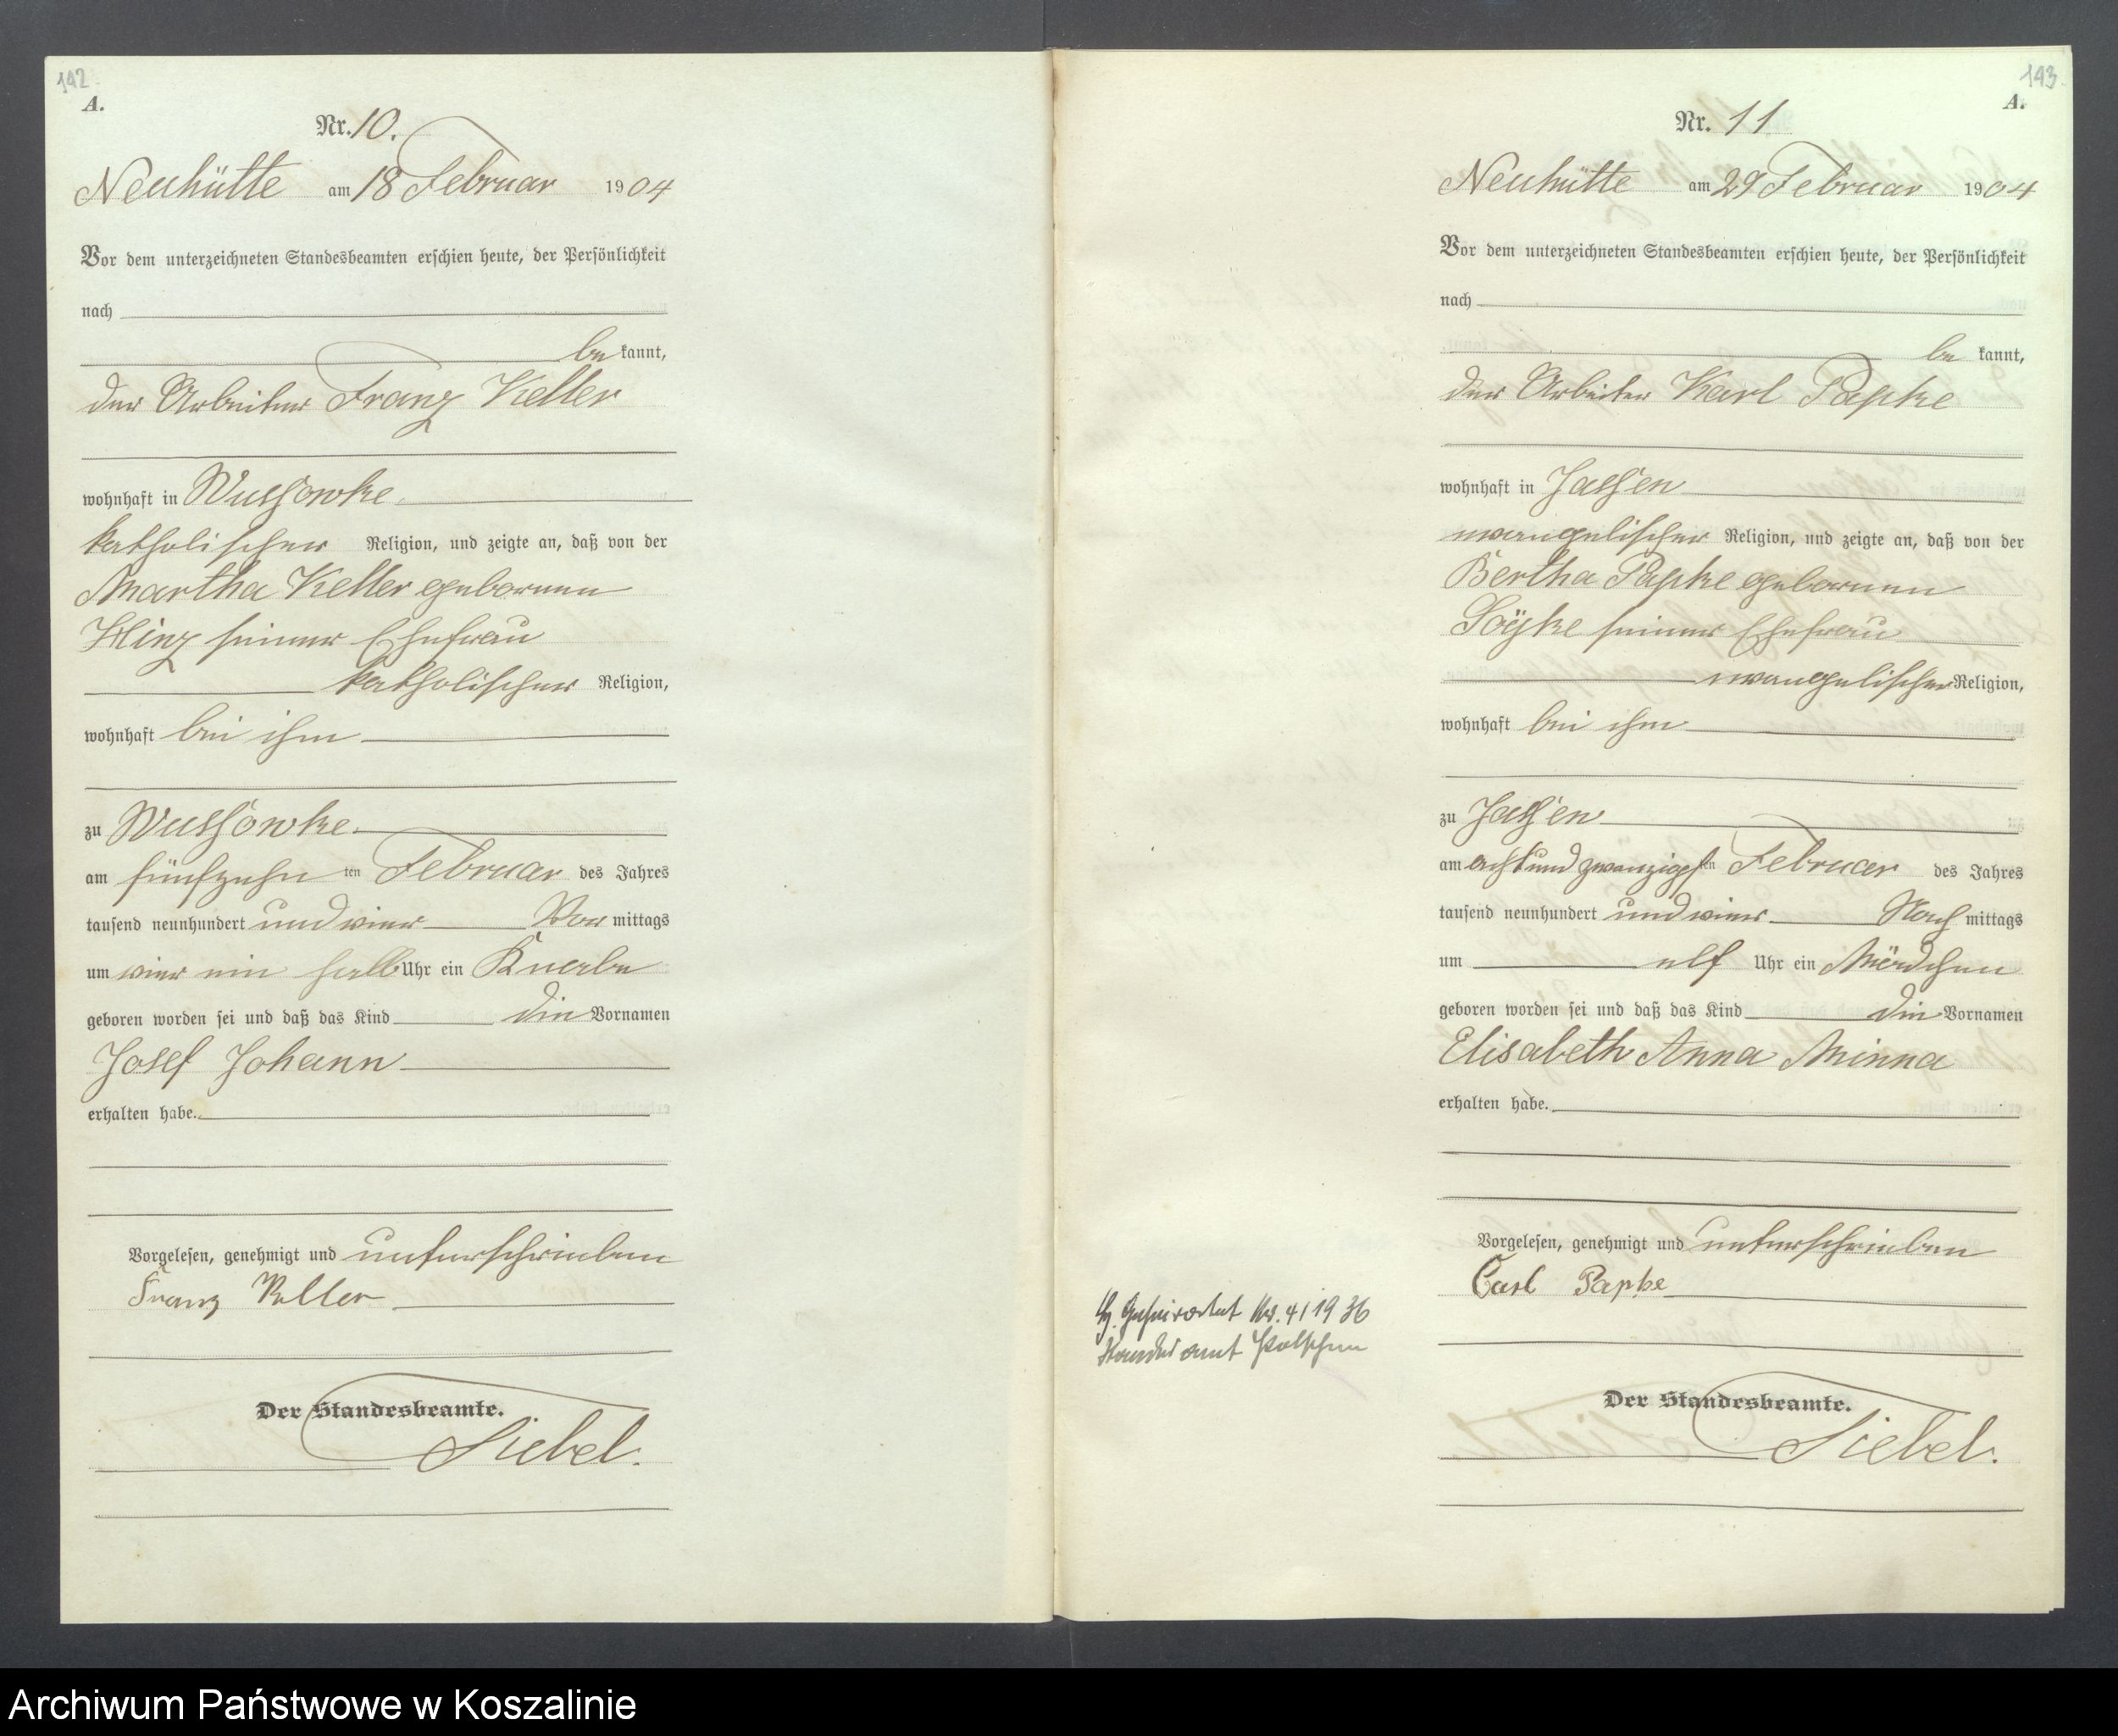 142.
A.
Nr. 10.
Neuhütte am 18 Februar 1904
Vor dem unterzeichneten Standesbeamten erschien heute, der Persönlichkeit
nach
be kannt,
der Arbeiter Franz Keller
wohnhaft in Wussowke
katholischer Religion, und zeigte an, daß von der
Martha Keller geborenen
Hinz seiner Ehefrau
katholischer Religion,
wohnhaft bei ihm
zu Wussowke
am fünfzehn ten Februar des Jahres
tausend neunhundert und vier Vor mittags
um vier ein halb Uhr ein Knabe
geboren worden sei und daß das Kind die Vornamen
Josef Johann
erhalten habe.
Vorgelesen, genehmigt und unterschrieben
Franz Keller
Der Standesbeamte.
Siebel.
143.
A.
Nr. 11
Neuhütte am 29 Februar 1904
Vor dem unterzeichneten Standesbeamten erschien heute, der Persönlichkeit
nach
be kannt,
der Arbeiter Karl Papke
wohnhaft in Jassen
evangelischer Religion, und zeigte an, daß von der
Bertha Papke geborenen
Söÿke seiner Ehefrau
evangelischer Religion,
wohnhaft bei ihm
zu Jassen
am acht und zwanzigsten Februar des Jahres
tausend neunhundert und vier Nach mittags
um elf Uhr ein Mädchen
geboren worden sei und daß das Kind die Vornamen
Elisabeth Anna Minna
erhalten habe.
Vorgelesen, genehmigt und unterschrieben
Carl Papke
Geheiratet Nr. 4/1936
Standesamt
Der Standesbeamte.
Siebel.
Archiwum Państwowe w Koszalinie